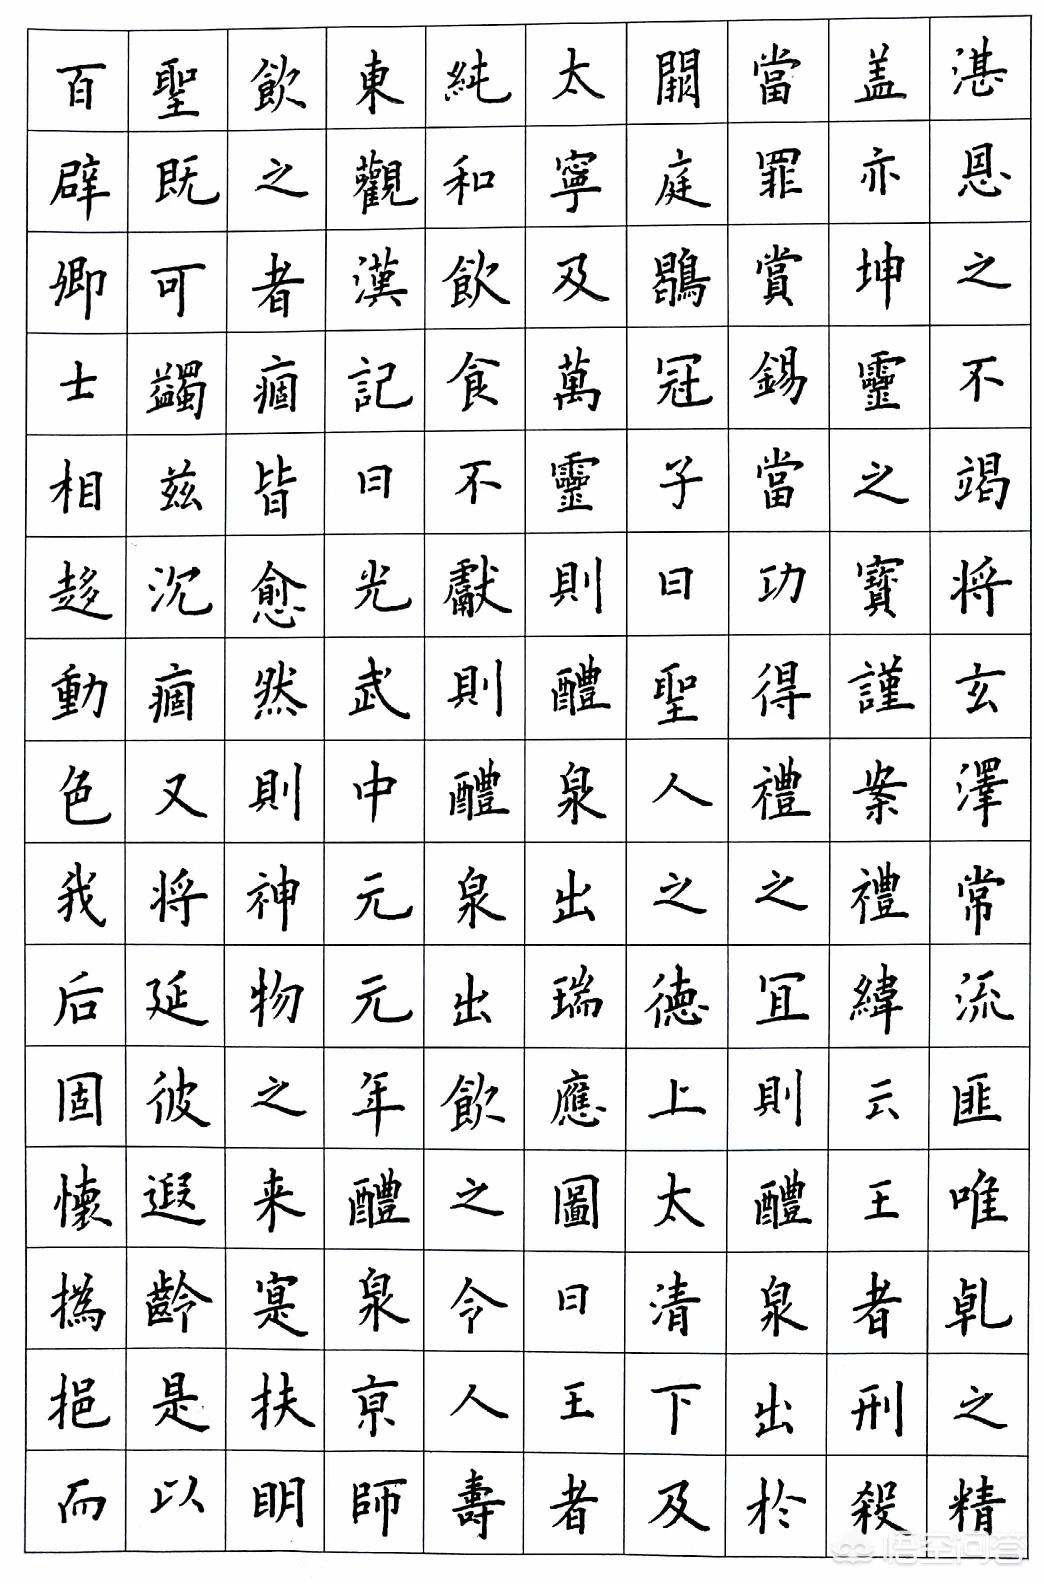 湛恩之不竭将玄澤常流匪唯乹之精
盖亦坤靈之寶謹案禮緯云王者刑殺
當罪賞錫當功得禮之冝則醴泉出於
闕庭鶡冠子曰聖人之德上及太清下及
太寧及萬靈則醴泉出瑞應圖曰王者
純和飲食不獻則醴泉出飲之令人壽
東觀漢記曰光武中元元年醴泉亰師
飲之者痼皆愈然則神物之来寔扶明
聖既可蠲兹沉痼又将延彼遐齡是以
百辟卿士相趍動色我后固懷撝挹而
悟空问答